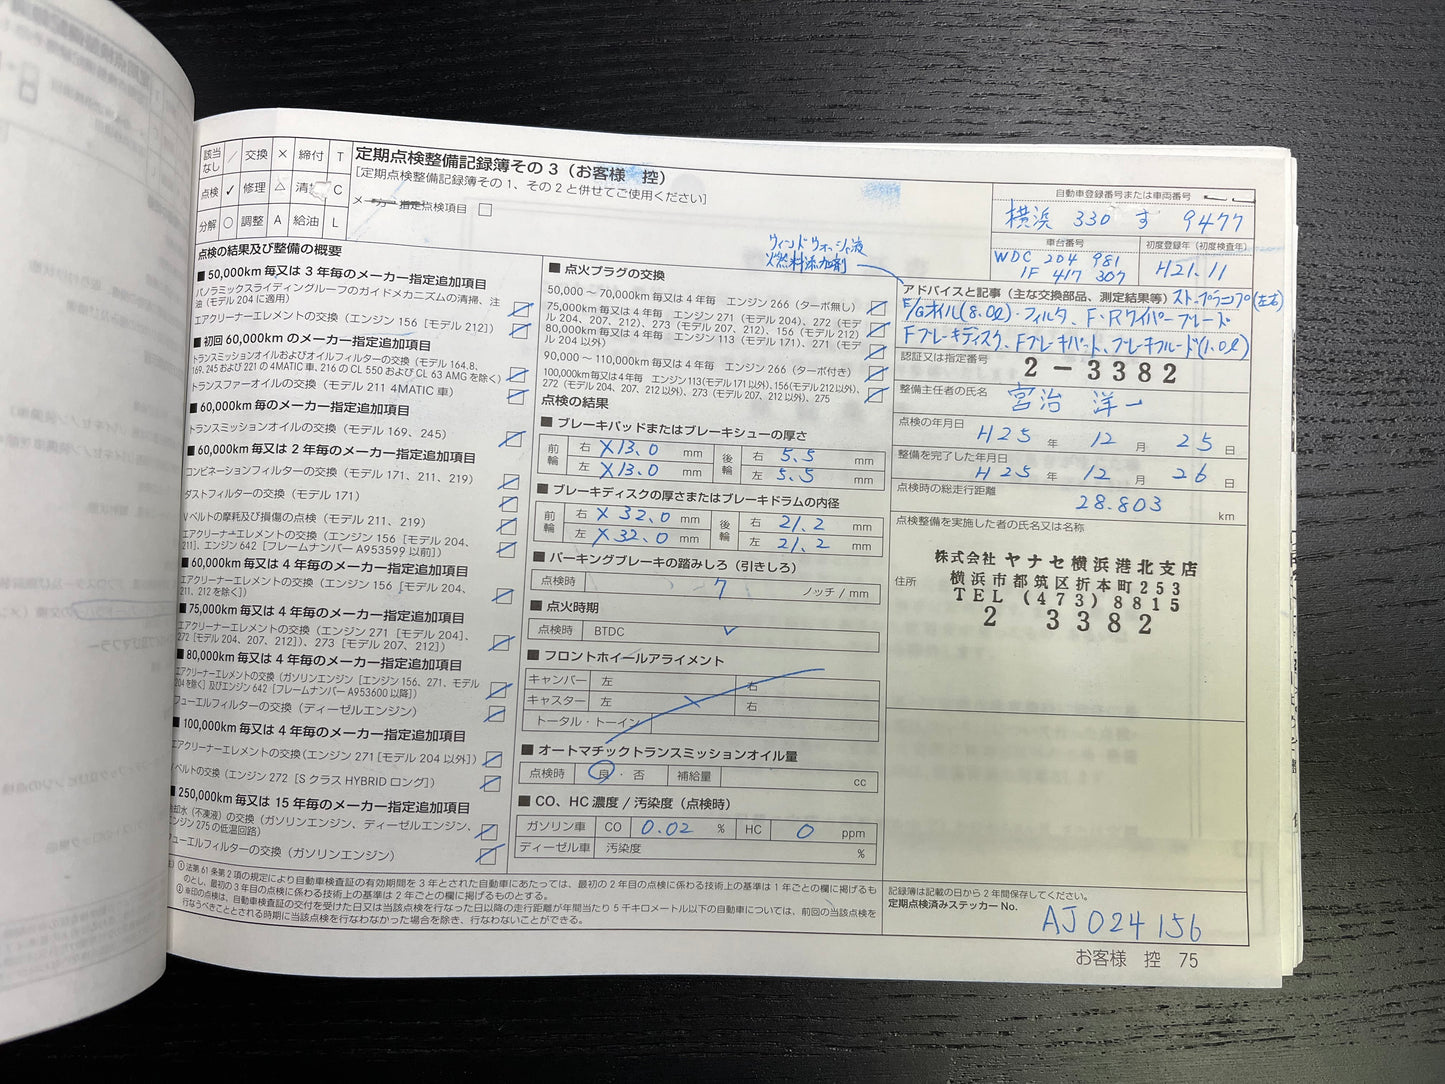 該当なし ／ 交換 × 締付 T
点検 ✓ 修理 △ 清 C
分解 ○ 調整 A 給油 L
定期点検整備記録簿その 3（お客様 控）
[定期点検整備記録簿その 1、その 2 と併せてご使用ください]
メーカー 指定点検項目 □
自動車登録番号または車両番号
横浜 330 す 9477
車台番号
WDC 204 981
1F 417 307
初度登録年（初度検査年）
H21.11
点検の結果及び整備の概要
■ 50,000km 毎又は 3 年毎のメーカー指定追加項目
パノラミックスライディングルーフのガイドメカニズムの清掃、注
油（モデル 204 に適用）
エアクリーナーエレメントの交換（エンジン 156［モデル 212］）
■ 初回 60,000km のメーカー指定追加項目
トランスミッションオイルおよびオイルフィルターの交換（モデル 164.8、
169、245 および 221 の 4MATIC 車、216 の CL 550 および CL 63 AMG を除く）
トランスファーオイルの交換（モデル 211 4MATIC 車）
■ 60,000km 毎のメーカー指定追加項目
トランスミッションオイルの交換（モデル 169、245）
■ 60,000km 毎又は 2 年毎のメーカー指定追加項目
コンビネーションフィルターの交換（モデル 171、211、219）
ダストフィルターの交換（モデル 171）
V ベルトの摩耗及び損傷の点検（モデル 211、219）
エアクリーナーエレメントの交換（エンジン 156［モデル 204、
211］、エンジン 642［フレームナンバー A953599 以前］）
■ 60,000km 毎又は 4 年毎のメーカー指定追加項目
エアクリーナーエレメントの交換（エンジン 156［モデル 204、
211、212 を除く］）
■ 75,000km 毎又は 4 年毎のメーカー指定追加項目
エアクリーナーエレメントの交換（エンジン 271［モデル 204］、
272［モデル 204、207、212］）、273（モデル 207、212］）
■ 80,000km 毎又は 4 年毎のメーカー指定追加項目
エアクリーナーエレメントの交換（ガソリンエンジン［エンジン 156、271、モデル
204 を除く］及びエンジン 642［フレームナンバー A953600 以降］）
フューエルフィルターの交換（ディーゼルエンジン）
■ 100,000km 毎又は 4 年毎のメーカー指定追加項目
エアクリーナーエレメントの交換（エンジン 271［モデル 204 以外］）
ベルトの交換（エンジン 272［S クラス HYBRID ロング］）
■ 250,000km 毎又は 15 年毎のメーカー指定追加項目
冷却水（不凍液）の交換（ガソリンエンジン、ディーゼルエンジン、
エンジン 275 の低温回路）
フューエルフィルターの交換（ガソリンエンジン）
■ 点火プラグの交換
50,000 ～ 70,000km 毎又は 4 年毎 エンジン 266（ターボ無し）
75,000km 毎又は 4 年毎 エンジン 271（モデル 204）、272（モデ
ル 204、207、212）、273（モデル 207、212）、156（モデル 212）
80,000km 毎又は 4 年毎 エンジン 113（モデル 171）、271（モデ
ル 204 以外）
90,000 ～ 110,000km 毎又は 4 年毎 エンジン 266（ターボ付き）
100,000km毎又は4年毎 エンジン113（モデル171以外）、156（モデル212以外）、
272（モデル 204、207、212 以外）、273（モデル 207、212 以外）、275
点検の結果
■ ブレーキパッドまたはブレーキシューの厚さ
前輪 右 ×13.0 mm 後輪 右 5.5 mm
左 ×13.0 mm 左 5.5 mm
■ ブレーキディスクの厚さまたはブレーキドラムの内径
前輪 右 × 32.0 mm 後輪 右 21.2 mm
左 ×32.0 mm 左 21.2 mm
■ パーキングブレーキの踏みしろ（引きしろ）
点検時 7 ノッチ / mm
■ 点火時期
点検時 BTDC ✓
■ フロントホイールアライメント
キャンバー 左 右
キャスター 左 右
トータル・トーイン
■ オートマチックトランスミッションオイル量
点検時 良 ・ 否 補給量 cc
■ CO、HC 濃度 / 汚染度（点検時）
ガソリン車 CO 0.02 % HC 0 ppm
ディーゼル車 汚染度 %
ウィンドウォッシャ液
燃料添加剤
アドバイスと記事（主な交換部品、測定結果等）ストップランプ(左右)
E/Gオイル(8.0ℓ)・フィルタ、F・Rワイパーブレード
Fブレーキディスク、Fブレーキパット、ブレーキフルード(1.0ℓ)
認証又は指定番号
2－3382
整備主任者の氏名
宮治 洋一
点検の年月日
H25 年 12 月 25 日
整備を完了した年月日
H25 年 12 月 26 日
点検時の総走行距離
28.803 km
点検整備を実施した者の氏名又は名称
株式会社 ヤナセ横浜港北支店
住所
横浜市都筑区折本町253
TEL (473) 8815
2 3382
① 法第 61 条第 2 項の規定により自動車検査証の有効期間を 3 年とされた自動車にあたっては、最初の 2 年目の点検に係わる技術上の基準は 1 年ごとの欄に掲げるも
のとし、最初の 3 年目の点検に係わる技術上の基準は 2 年ごとの欄に掲げるものとする。
② ※印の点検は、自動車検査証の交付を受けた日又は当該点検を行なった日以降の走行距離が年間当たり 5 千キロメートル以下の自動車については、前回の当該点検を
行なうべきこととされる時期に当該点検を行なわなかった場合を除き、行なわないことができる。
記録簿は記載の日から 2 年間保存してください。
定期点検済みステッカー No.
AJ024156
お客様 控 75